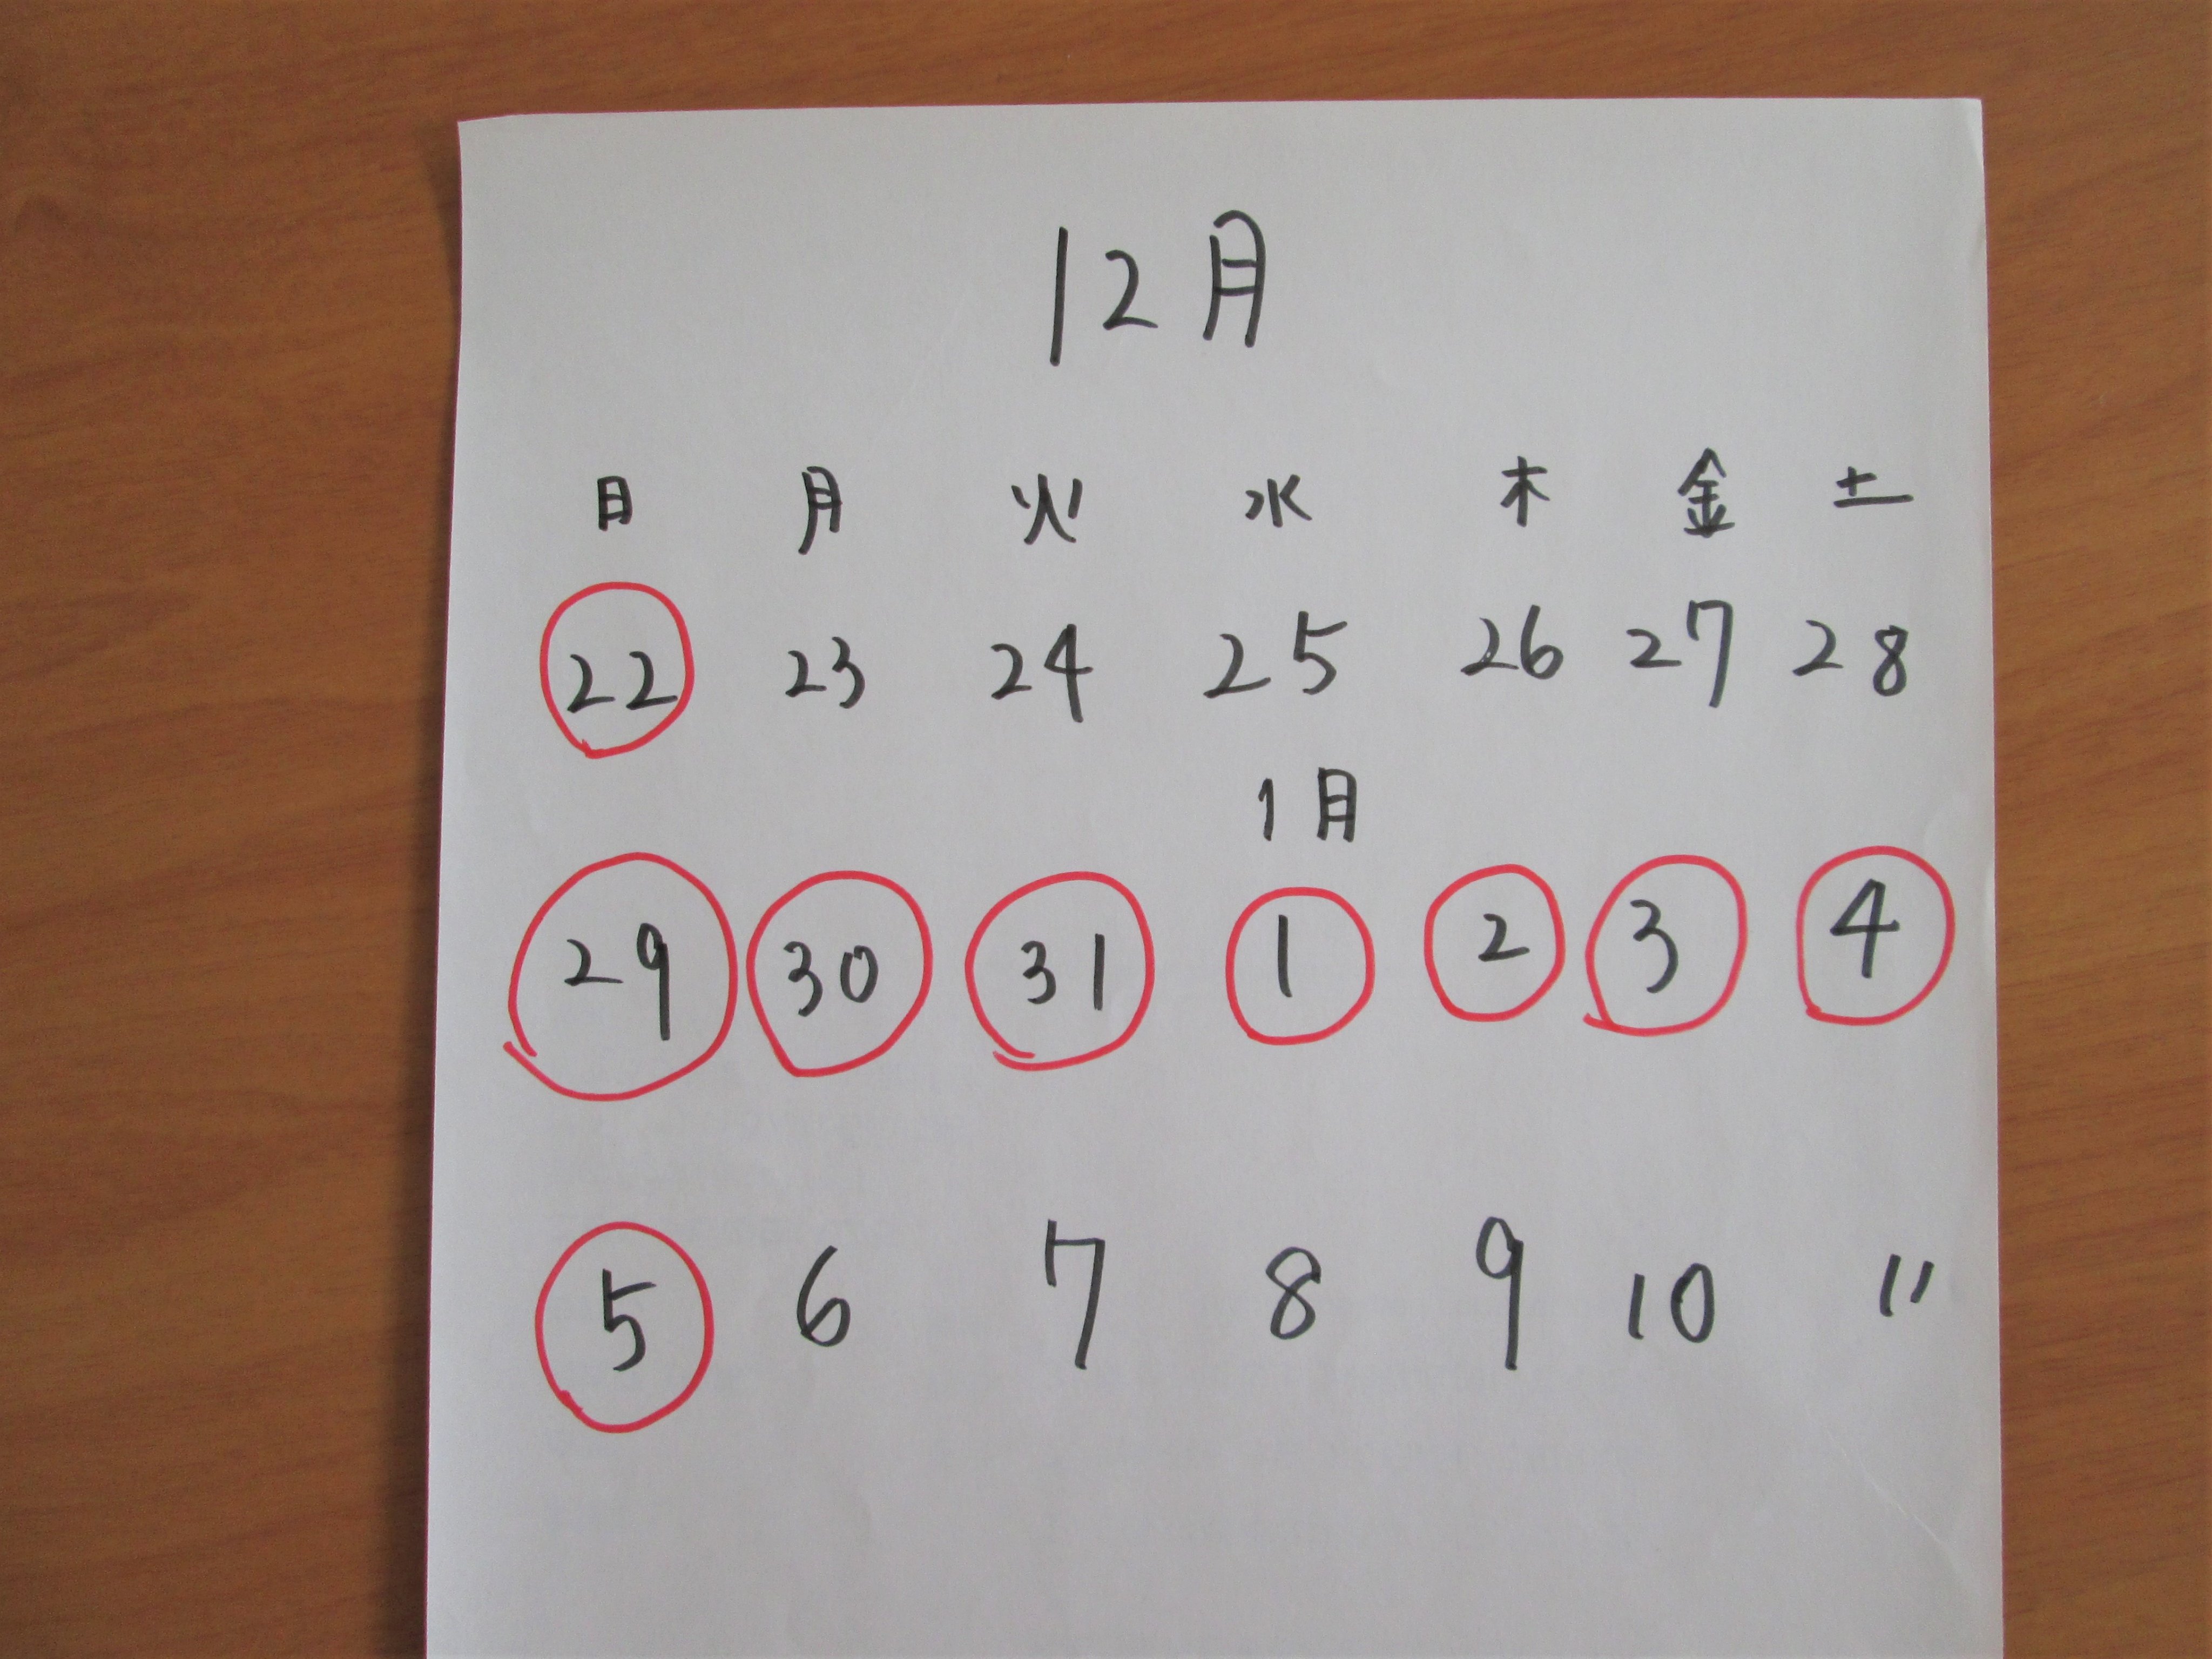 12月
日 月 火 水 木 金 土
22 23 24 25 26 27 28
1月
29 30 31 1 2 3 4
5 6 7 8 9 10 11